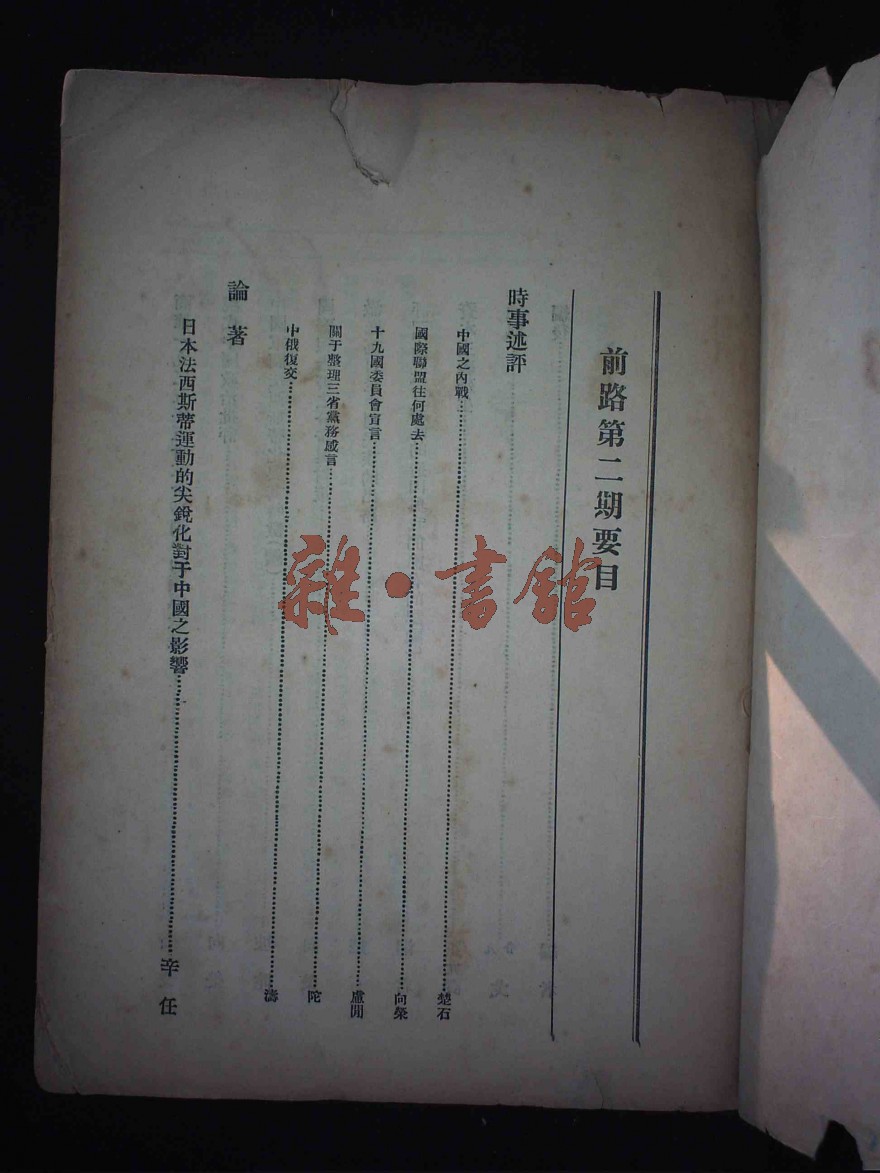 前路第二期要目
時事述評
中國之內戰…楚石
國際聯盟往何處去…向榮
十九國委員會宣言…盧閒
關于整理三省黨務感言…陀
中俄復交…濤
論著
日本法西斯蒂運動的尖銳化對于中國之影響…辛任
雜·書館